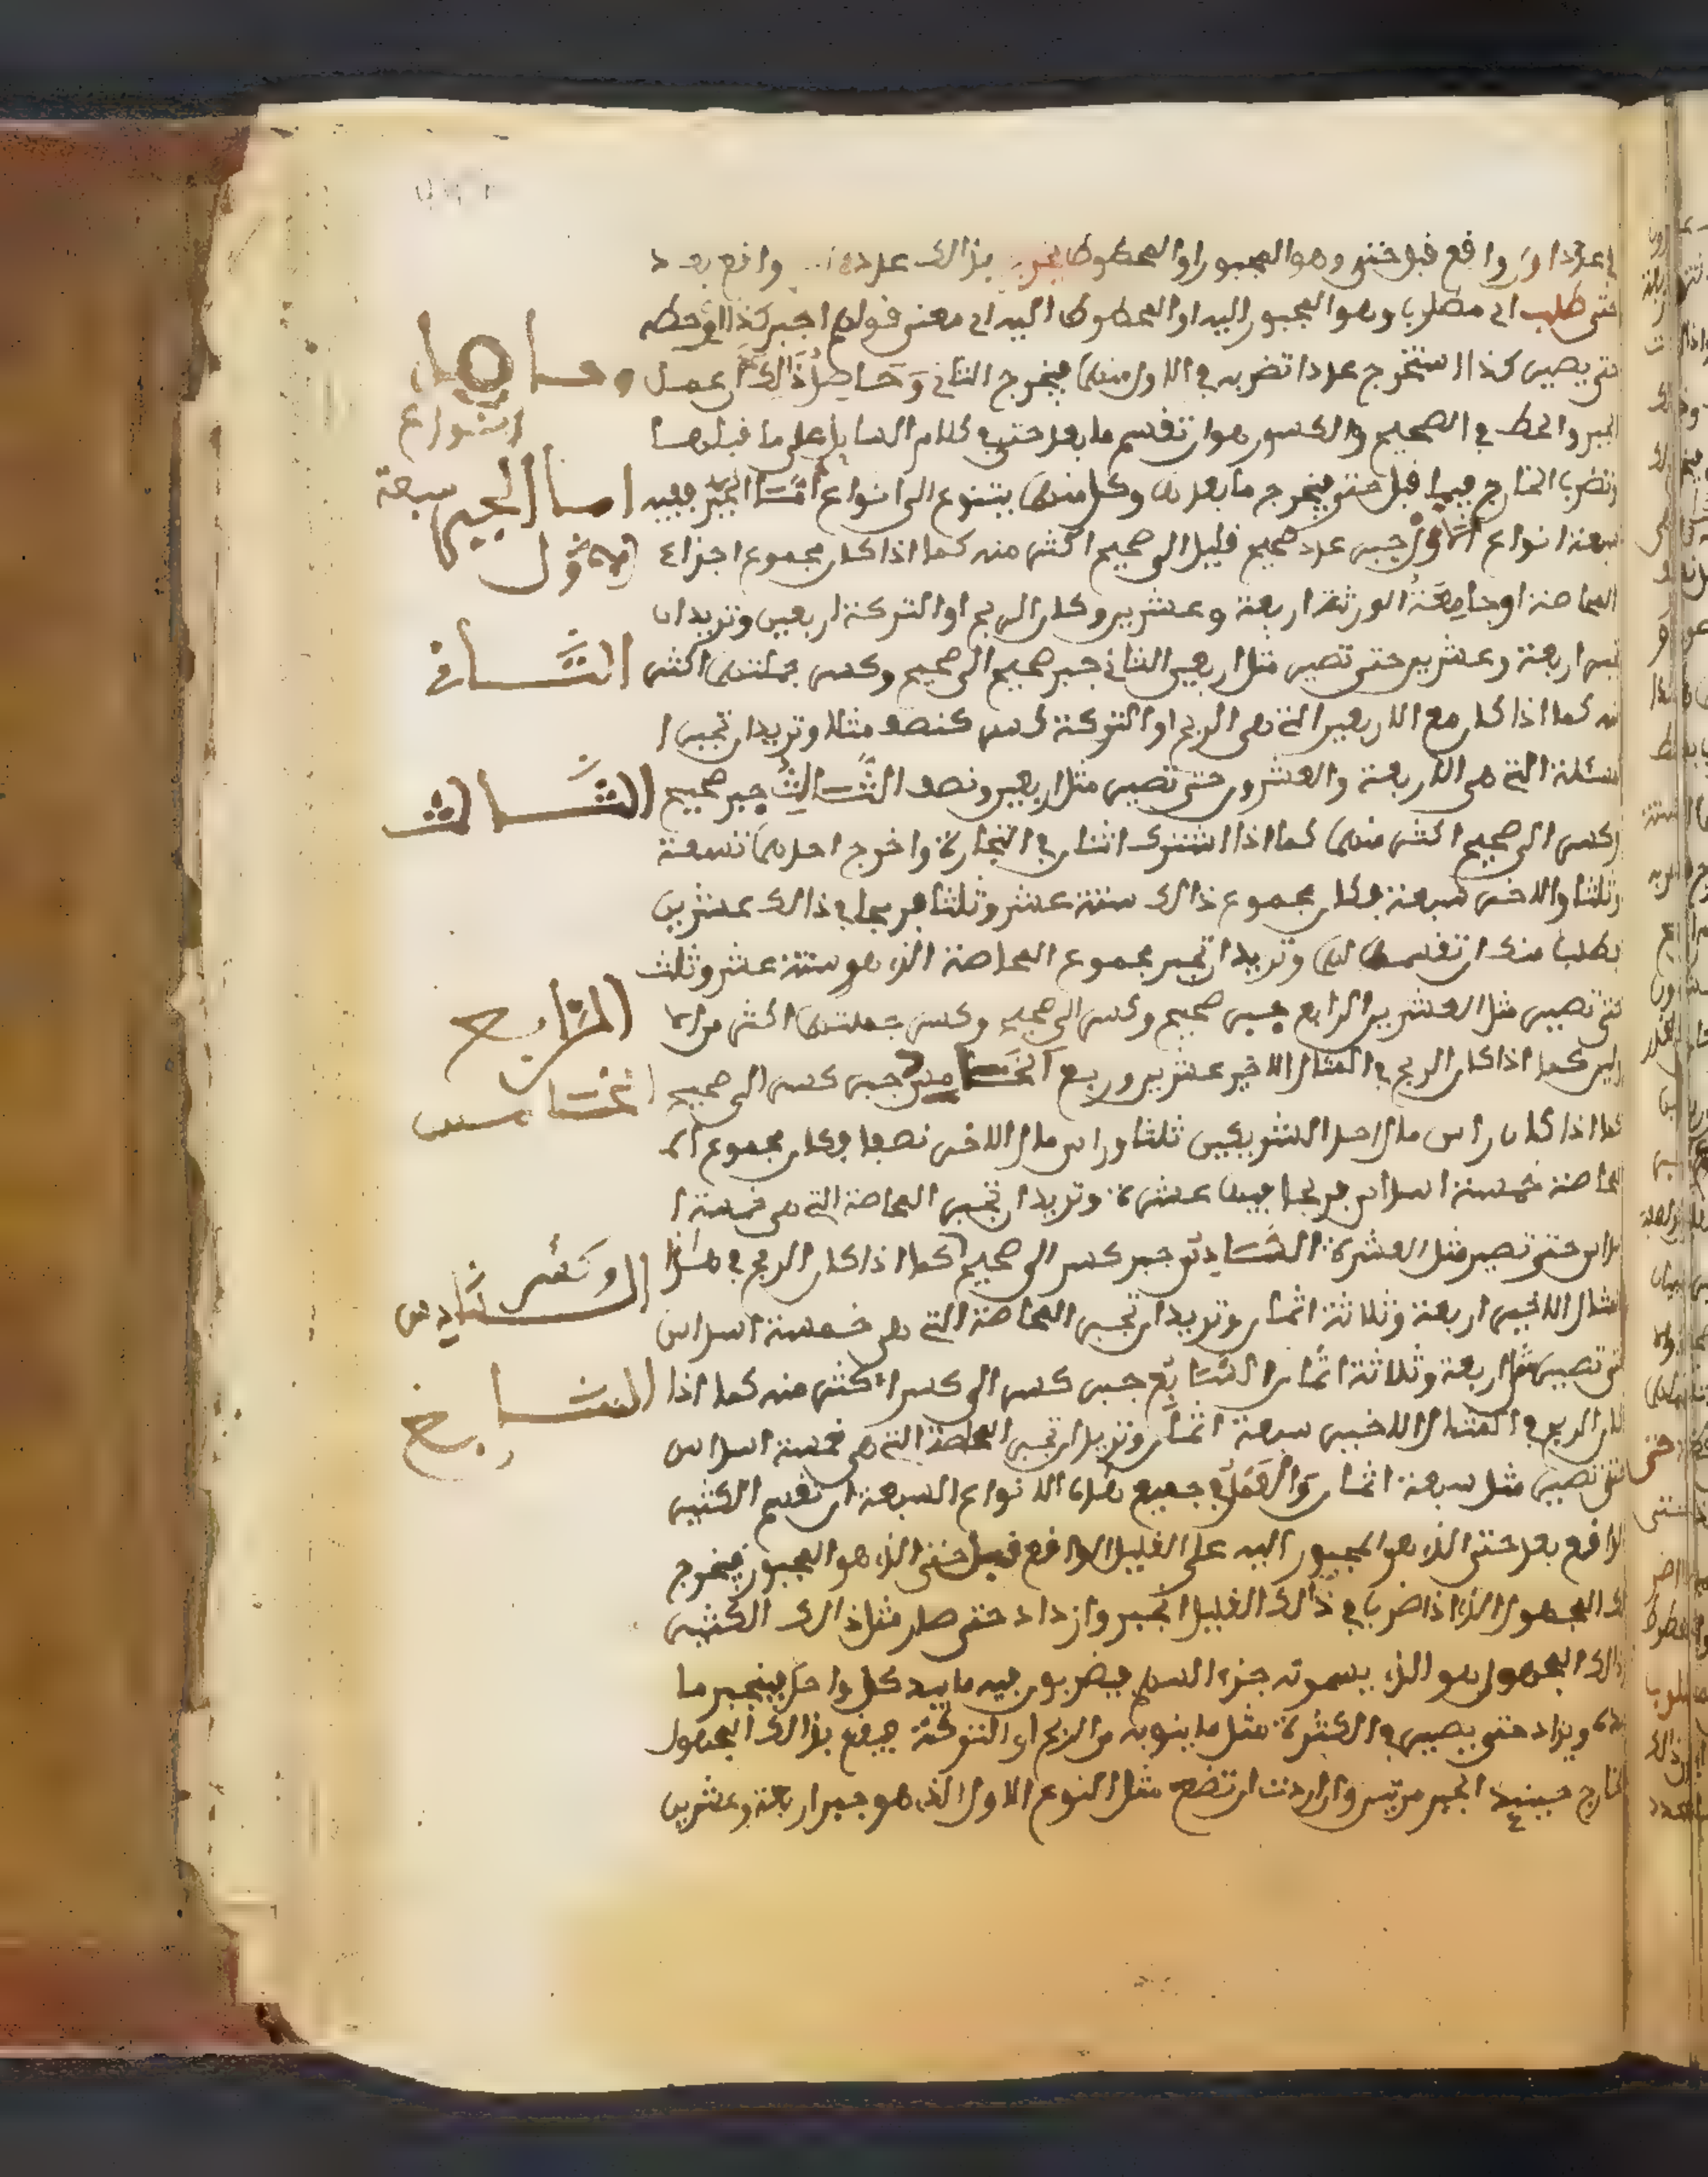 عدد اول واقع قبل حتى وهو المجبور او المحطوط بذالك عدد واقع بعد
حتى طلب اي مطلوب وهو المجبور اليه او المحطوط اليه اي معنى قولهم اجبر كذا او حطه
حتى يصير كذا استخرج عددا تضربه في الاول منهما فيخرج الثاني وَحَاصِلُ ذَالِكَ ان عمل
وحاصل
انواع
الجبر والحط في الصحيح والكسور هو ان تقسم ما بعد حتى في كلام السايل على ما قبلها
وتضرب الخارج فيما قبل حتى فيخرج ما بعدها وكل منهما يتنوع الى انواع امَّا الجَبْرُ ففيه
اما الجبر
سبعة
سبعة انواع الاَوَّل جبر عدد صحيح قليل الى صحيح اكثر منه كما اذا كان مجموع اجزاء
الاول
المحاصة او جَامِعَةُ الورثة اربعة وعشرين وكان الربح او التركة اربعين وتريد ان
تجبر اربعة وعشرين حتى تصير مثل اربعين الثاني جبر صحيح الى صحيح وكسر جملتهما اكثر
الثَّاني
منه كما اذا كان مع الاربعين التي هي الربح او التركة كسر كنصف مثلا وتريد ان تجبر ا
لمسئلة التي هي الاربعة والعشرون حتى تصير مثل اربعين ونصف الثَّالِثُ جبر صحيح
الثَّالث
وكسر الى صحيح اكثر منهما كما اذا اشترك اثنان في التجارة واخرج احدهما تسعة
وثلثا والاخر سبعة فكان مجموع ذالك ستة عشر وثلثا فربحا في ذالك عشرين
فطلب منك ان تقسمها لهما وتريد ان تجبر مجموع المحاصة الذي هو ستة عشر وثلث
حتى تصير مثل العشرين الرابع جبر صحيح وكسر الى صحيح وكسر جملتهما اكثر من الا
الرَّابع
ولين كما اذا كان الربح في المثال الاخير عشرين وربع الخَامِسُ جبر كسر الى صحيح
الخامس
كما اذا كان راس مال احد الشريكين ثلثا وراس مال الاخر نصفا فكان مجموع الم
حاصة خمسة اسداس فربحا فيها عشرة وتريد ان تجبر المحاصة التي هي خمسة ا
سداس حتى تصير مثل العشرة السَّادِسُ جبر كسر الى صحيح كما اذا كان الربح في هذا
وكسر
السَّادس
المثال الاخير اربعة وثلاثة اثمان وتريد ان تجبر المحاصة التي هي خمسة اسداس
حتى تصير مثل اربعة وثلاثة اثمان السَّابِعُ جبر كسر الى كسر اكثر منه كما اذا
السابع
كان الربح في المثال الاخير سبعة اثمان وتريد ان تجبر المحاصة التي هي خمسة اسداس
حتى تصير مثل سبعة اثمان وَالعَمَلُ في جميع هذه الانواع السبعة ان تقسم الكثير
الواقع بعد حتى الذي هو المجبور اليه على القليل الواقع قبل حتى الذي هو المجبور فيخرج
لك المجهول الذي اذا ضرب في ذالك القليل انجبر وازداد حتى صار مثل ذالك الكثير
وذالك المجهول هو الذي يسمونه جزء السهم فيضربون فيه ما بيد كل واحد فينجبر ما
بيده ويزاد حتى يصير في الكثرة مثل ما ينوبه من الربح او التركة فيقع بذالك المجهول
الخارج حينئذ الجبر مرتين وان اردت ان تضع مثل النوع الاول الذي هو جبر اربعة وعشرين